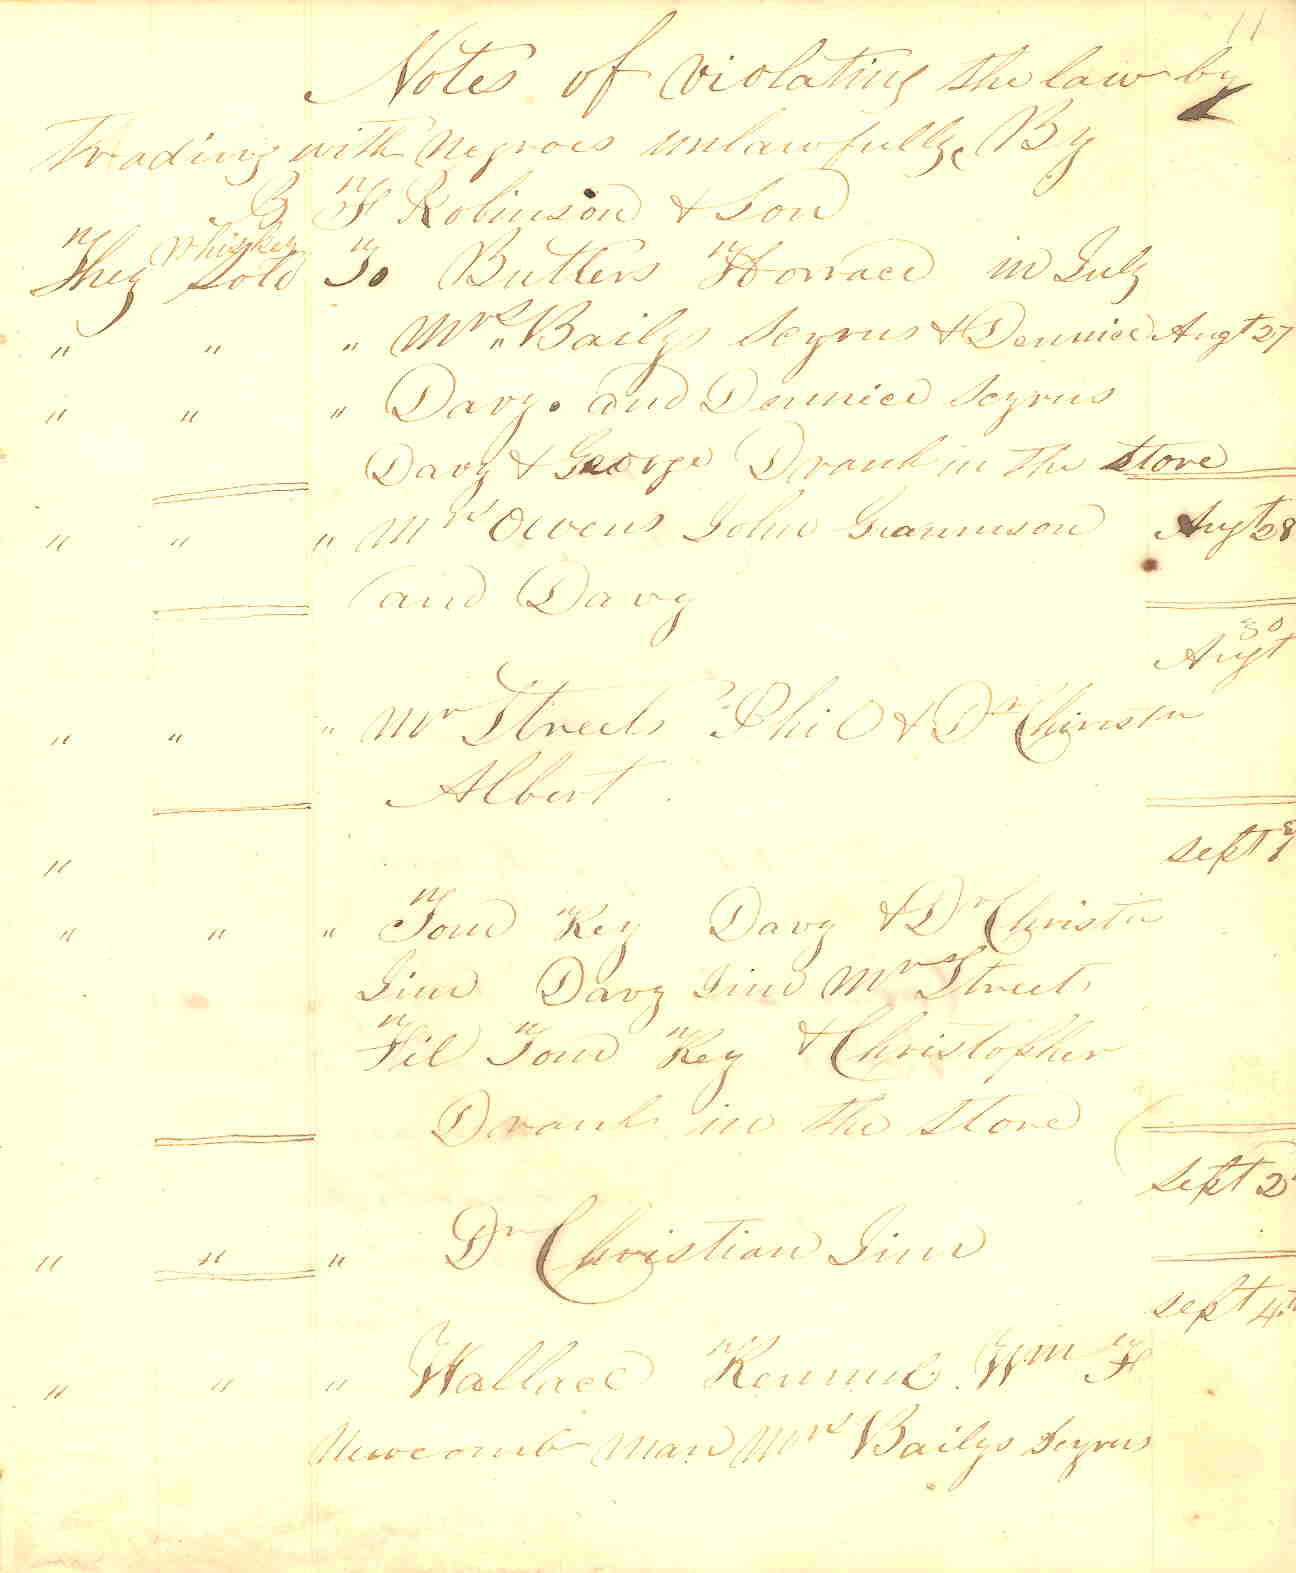 11
Notes of violating the law by
Trading with negroes unlawfully, By
B F Robinson & Son
They sold whiskey To Butlers Horrace in July
" " " Mrs Bailys Scyrus & Dennice Augt 27
" " " Davy. and Dennice Scyrus
Davy & George Drank in the store
" " " Mrs Owens John Grannison Augt 28
and Davy
Augt 30
" " " Mr Streets Phil & Dr Christn
Albert
Sept 1
"
" " " Tom Key Davy & Dr Christn
Jim Davy Jim Mr Streets
Fil Tom Key & Christopher
Drank in the store
Sept 2
" " " Dr Christian Jim
Sept 4th
" " " Wallace Wm F
Newcomb man Mrs Bailys Scyrus